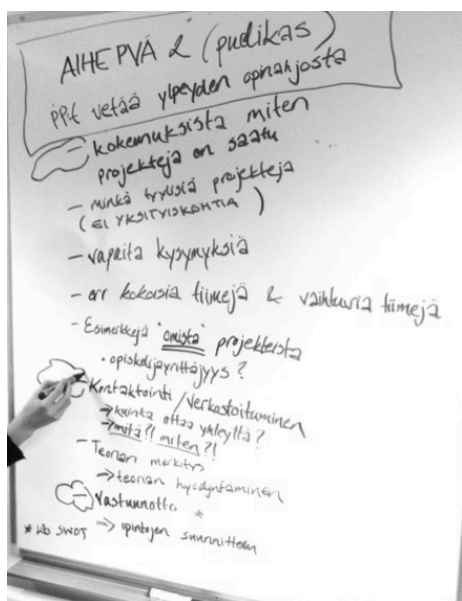 AIHE PVÄ 2 (pudikas)
PP:t vetää ylpeyden opinahjosta
- kokemuksista miten
projekteja on saatu
- minkä tyylisiä projekteja
(EI YKSITYISKOHTIA)
- vapaita kysymyksiä
- eri kokoisia tiimejä & vaihtuvia tiimejä
- Esimerkkejä "omista" projekteista
• opiskelijayrittäjyys?
- Kontaktointi/verkostoituminen
→ kuinka ottaa yhteyttä?
→ mitä?! miten?!
- Teorian merkitys
→ teorian hyödyntäminen
- Vastuunotto *
* SWOT → opintojen suunnittelu